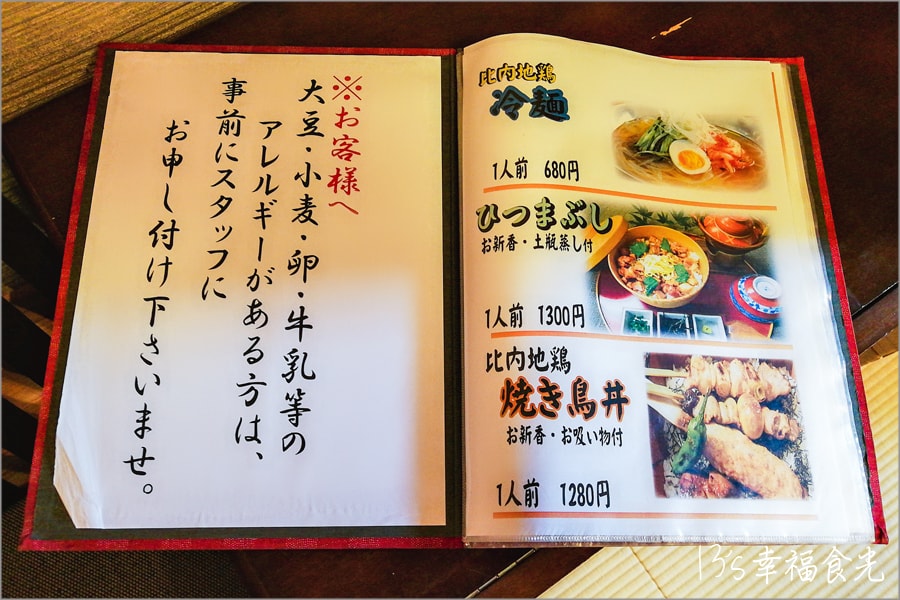 ※お客様へ
大豆・小麦・卵・牛乳等の
アレルギーがある方は、
事前にスタッフに
お申し付け下さいませ。
比内地鶏
冷麺
1人前 680円
ひつまぶし
お新香・土瓶蒸し付
1人前 1300円
比内地鶏
焼き鳥丼
お新香・お吸い物付
1人前 1280円
B's幸福食光